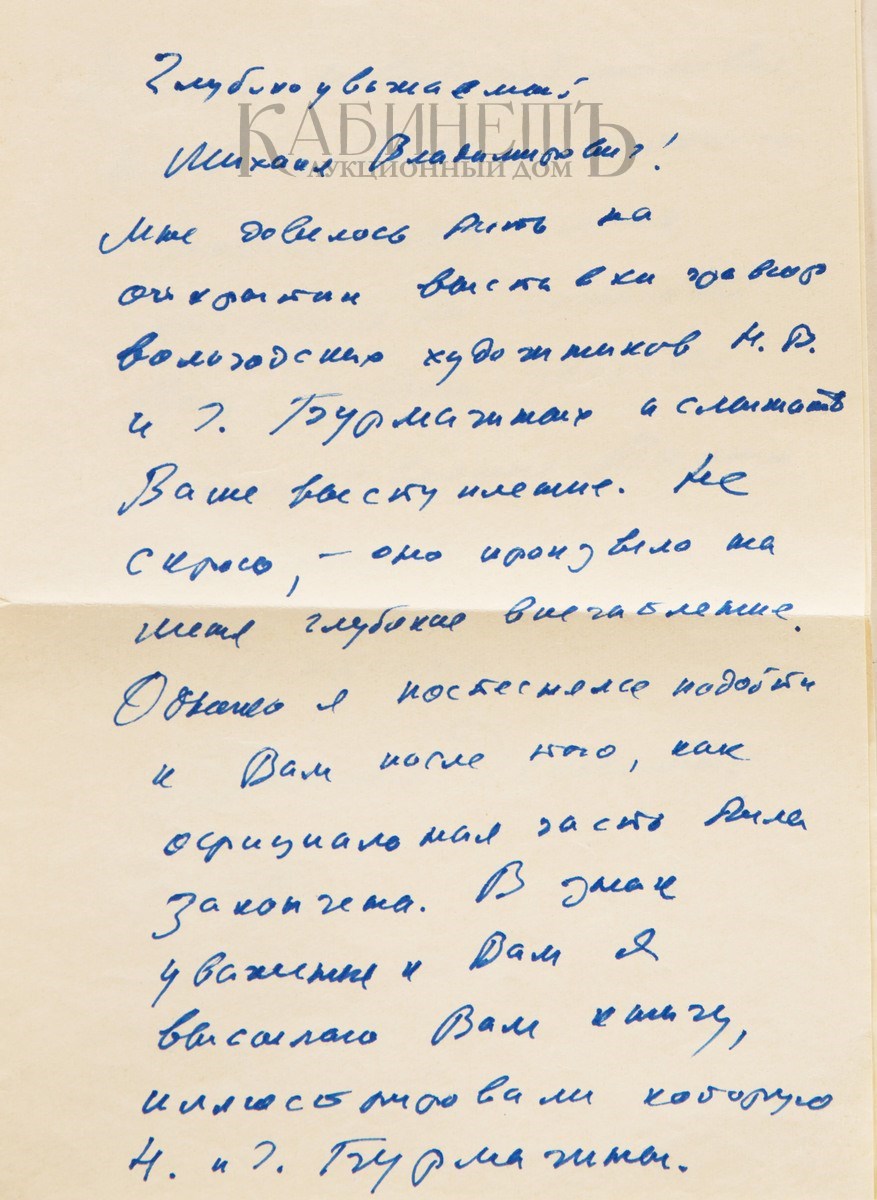 Глубокоуважаемый
КАБИНЕТЪ
АУКЦИОННЫЙ ДОМ
Михаил Владимирович!
Мне довелось быть на
открытии выставки гравюр
вологодских художников Н. В.
и Г. Бурмагиных и слышать
Ваше выступление. Не
скрою, – оно произвело на
меня глубокое впечатление.
Однако я постеснялся подойти
к Вам после того, как
официальная часть была
закончена. В знак
уважения к Вам я
высылаю Вам книгу,
иллюстрировали которую
Н. и Г. Бурмагины.